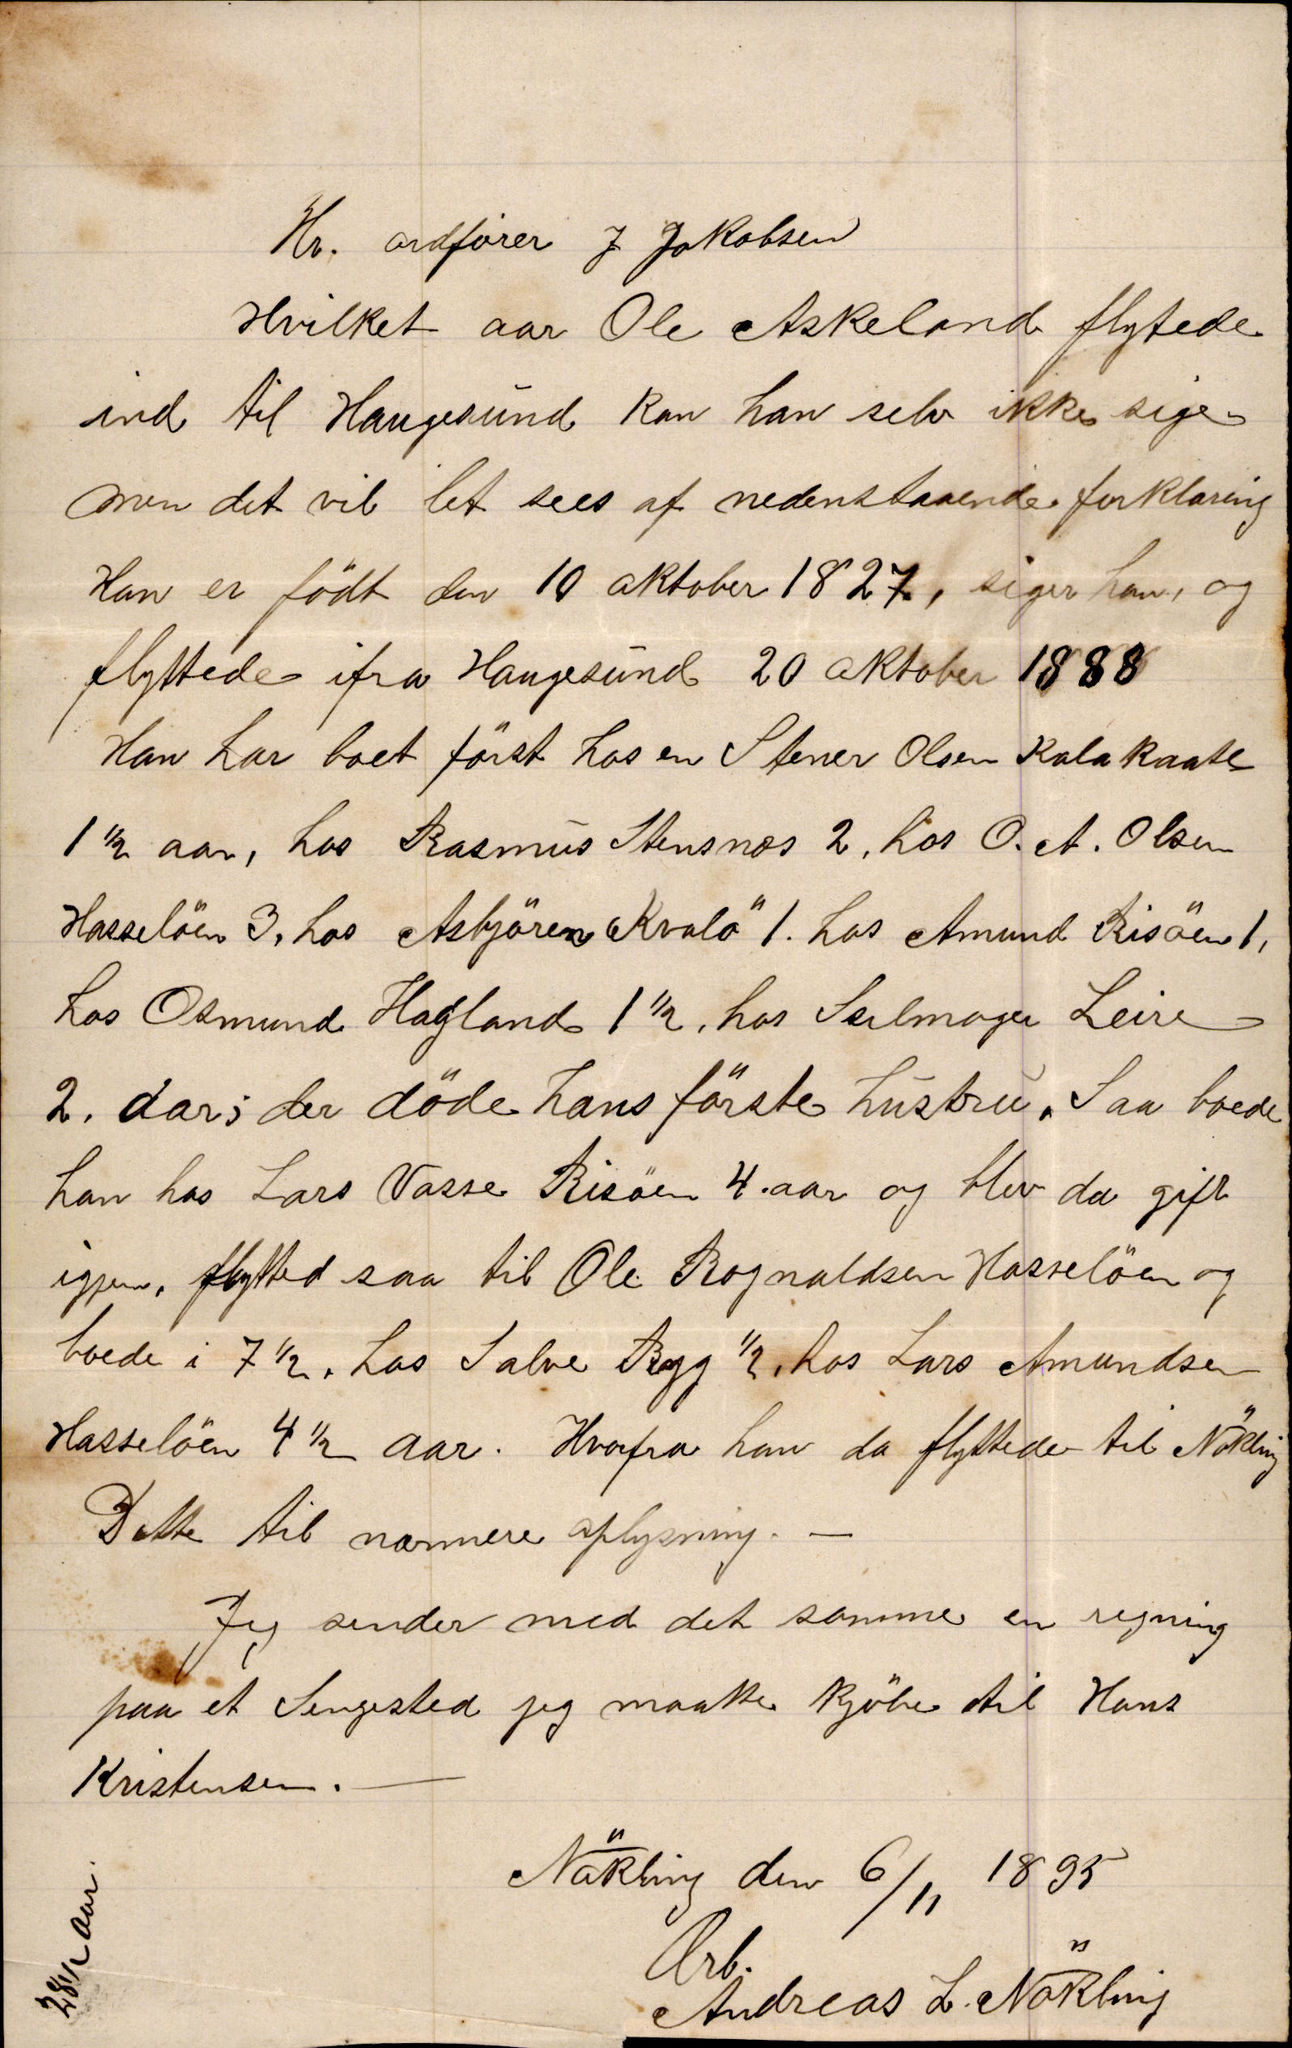 Hr. ordförer J Jakobsen
Hvilket aar Ole Askeland flytede
ind til Haugesund kan han selv ikke sige
men det vil let sees af nedenstaaende forklaring
Han er födt den 10 oktober 1827, siger han, og
flyttede ifra Haugesund 20 oktober 1888
Han har boet först hos en Stener Olsen Kalakaate
1 1/2 aar, hos Rasmus Stensnæs 2, hos O. A. Olsen
Hasselöen 3, hos Asbjören Kvalö 1. hos Amund Risöen 1,
hos Osmund Hagland 1 1/2, hos Seilmager Leire
2. dar; der döde hans förste hustru. Saa boede
han hos Lars Vasse Risöen 4. aar og blev da gift
igjen, flytted saa til Ole Rognaldsen Hasselöen og
boede i 7 1/2, hos Salve Bygg 1/2, hos Lars Amundsen
Hasselöen 4 1/2 aar. Hvorfra han da flyttede til Nökling
Dette til nærmere oplysning. —
Jeg sender med det samme en regning
paa et Sengested jeg maatte kjöbe til Hans
Kristensen. —
Nökling den 6/11 1895
Arb.
Andreas L. Nökling
28 1/2 aar.